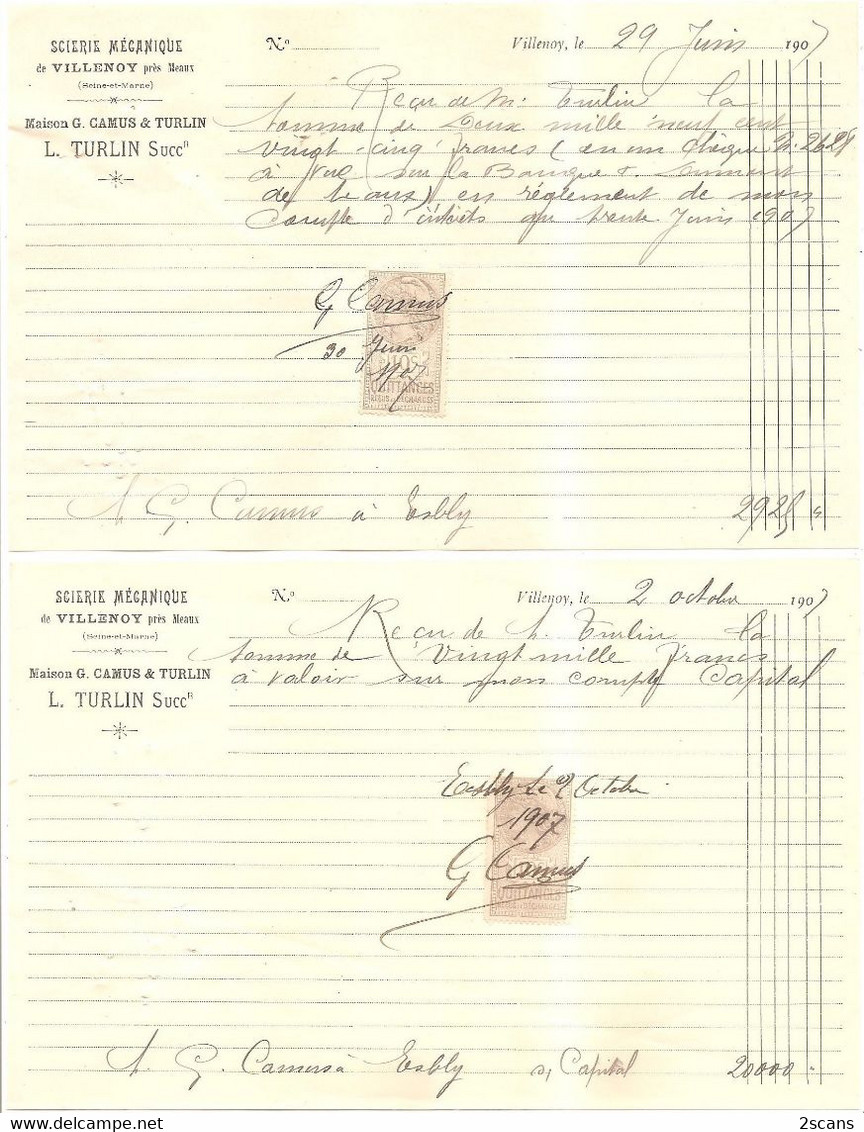 SCIERIE MÉCANIQUE
de VILLENOY près Meaux
(Seine-et-Marne)
Maison G. CAMUS & TURLIN
L. TURLIN Succᴿ
Nº
Villenoy, le 29 Juin 1907
Reçu de M. Turlin la
somme de Deux mille neuf cent
vingt-cinq francs (en un chèque N. 2628
à vue sur la Banque
de Meaux) en règlement de mon
compte d'intérêts au trente Juin 1907
G Camus
30 Juin
1907
10c
QUITTANCES
REÇUS et DÉCHARGES
M G. Camus à Esbly 2925 "
SCIERIE MÉCANIQUE
de VILLENOY près Meaux
(Seine-et-Marne)
Maison G. CAMUS & TURLIN
L. TURLIN Succᴿ
Nº
Villenoy, le 2 octobre 1907
Reçu de M. Turlin la
somme de Vingt mille francs
à valoir sur mon compte Capital
Esbly le 2 Octobre
1907
G Camus
QUITTANCES
M. G. Camus à Esbly s/ Capital 20000 "
2scans